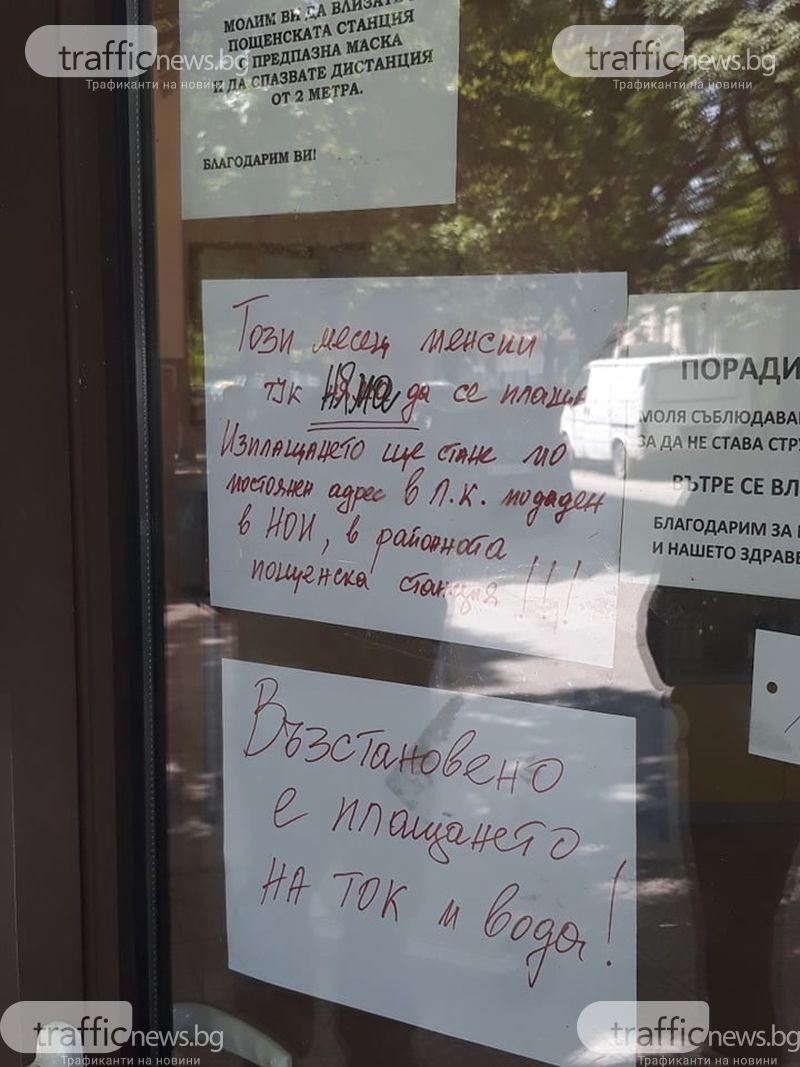 МОЛИМ ВИ ДА ВЛИЗАТЕ
ПОЩЕНСКАТА СТАНЦИЯ
С ПРЕДПАЗНА МАСКА
И ДА СПАЗВАТЕ ДИСТАНЦИЯ
ОТ 2 МЕТРА.
БЛАГОДАРИМ ВИ!
trafficnews.bg
Трафиканти на новини
trafficnews.bg
Трафиканти на новини
Този месец пенсии
тук няма да се
Изплащането ще стане по
постоянен адрес в Л.К. подаден
в НОИ, в районната
пощенска станция !!!
ПОРАДИ
МОЛЯ СЪБЛЮДАВА
ЗА ДА НЕ СТАВА СТРУ
ВЪТРЕ СЕ ВЛ
БЛАГОДАРИМ ЗА
И НАШЕТО ЗДРАВЕ
Възстановено
е плащането
на ток и вода!
trafficnews.bg
Трафиканти на новини
trafficnews.bg
Трафиканти на новини